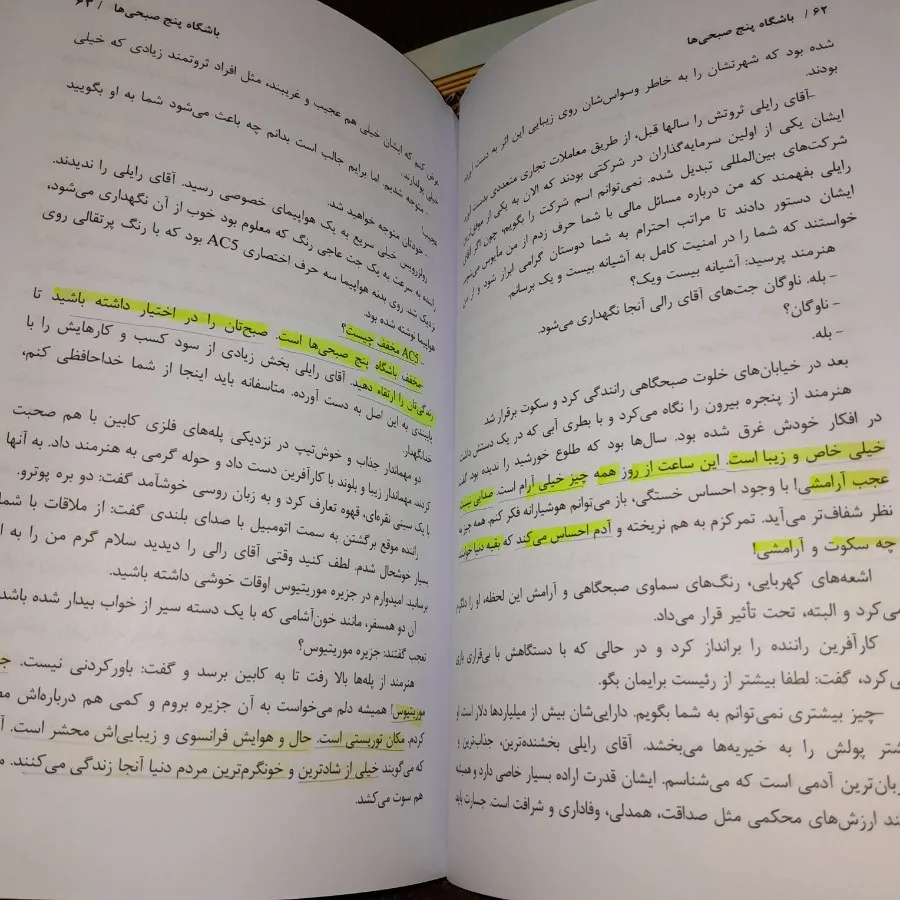 ۶۲ / باشگاه پنج صبحی‌ها
شده بود که شهرتشان را به خاطر وسواس‌شان روی زیبایی این اثر به دست
بودند.
-آقای رایلی ثروتش را سالها قبل، از طریق معاملات تجاری متعددی بدست
ایشان یکی از اولین سرمایه‌گذاران در شرکتی بودند که الان به یکی از
شرکت‌های بین‌المللی تبدیل شده. نمی‌توانم اسم شرکت را بگویم، چون اگر آقای
رایلی بفهمند که من درباره مسائل مالی با شما حرف زدم از من مأیوس
ایشان دستور دادند تا مراتب احترام به شما دوستان گرامی ابراز شود و
خواستند که شما را در امنیت کامل به آشیانه بیست و یک برسانم.
هنرمند پرسید: آشیانه بیست ویک؟
- بله. ناوگان جت‌های آقای رالی آنجا نگهداری می‌شود.
- ناوگان؟
- بله.
بعد در خیابان‌های خلوت صبحگاهی رانندگی کرد و سکوت برقرار شد
هنرمند از پنجره بیرون را نگاه می‌کرد و با بطری آبی که در یک دستش داشت
در افکار خودش غرق شده بود. سال‌ها بود که طلوع خورشید را ندیده بود گفت
خیلی خاص و زیبا است. این ساعت از روز همه چیز خیلی آرام است. صدایی نیست
عجب آرامشی! با وجود احساس خستگی، باز می‌توانم هوشیارانه فکر کنم. همه چیز به
نظر شفاف‌تر می‌آید. تمرکزم به هم نریخته و آدم احساس می‌کند که بقیه دنیا
چه سکوت و آرامشی!
اشعه‌های کهربایی، رنگ‌های سماوی صبحگاهی و آرامش این لحظه، او را
می‌کرد و البته، تحت تأثیر قرار می‌داد.
کارآفرین راننده را برانداز کرد و در حالی که با دستگاهش با بی‌قراری بازی
می‌کرد، گفت: لطفا بیشتر از رئیست برایمان بگو.
-چیز بیشتری نمی‌توانم به شما بگویم. دارایی‌شان بیش از میلیاردها دلار است
پولش را به خیریه‌ها می‌بخشد. آقای رایلی بخشنده‌ترین، جذاب‌ترین و
آدمی است که می‌شناسم. ایشان قدرت اراده بسیار خاصی دارد و همیشه
ارزش‌های محکمی مثل صداقت، همدلی، وفاداری و شرافت است. جسارت
باشگاه پنج صبحی‌ها / ۶۳
کنم که ایشان خیلی هم عجیب و غریبند، مثل افراد ثروتمند زیادی که خیلی
خیلی پولدارند.
- متوجه شدیم. اما برایم جالب است بدانم چه باعث می‌شود شما به او بگویید
عجیب؟
- خودتان متوجه خواهید شد.
رولزرویس خیلی سریع به یک هواپیمای خصوصی رسید. آقای رایلی را ندیدند.
راننده به سرعت به یک جت عاجی رنگ که معلوم بود خوب از آن نگهداری می‌شود،
نزدیک شد. روی بدنه هواپیما سه حرف اختصاری AC5 بود که با رنگ پرتقالی روی
هواپیما نوشته شده بود.
- AC5 مخفف چیست؟
-مخفف باشگاه پنج صبحی‌ها است. صبح‌تان را در اختیار داشته باشید تا
زندگی‌تان را ارتقاء دهید. آقای رایلی بخش زیادی از سود کسب و کارهایش را با
پایبندی به این اصل به دست آورده. متاسفانه باید اینجا از شما خداحافظی کنم،
خدانگهدار.
دو مهماندار جذاب و خوش‌تیپ در نزدیکی پله‌های فلزی کابین با هم صحبت
کردند. مهماندار زیبا و بلوند با کارآفرین دست داد و حوله گرمی به هنرمند داد. به آنها
با یک سینی نقره‌ای، قهوه تعارف کرد و به زبان روسی خوشآمد گفت: دو بره پوترو.
راننده موقع برگشتن به سمت اتومبیل با صدای بلندی گفت: از ملاقات با شما
بسیار خوشحال شدم. لطف کنید وقتی آقای رالی را دیدید سلام گرم من را به
برسانید امیدوارم در جزیره موریتیوس اوقات خوشی داشته باشید.
آن دو همسفر، مانند خون‌آشامی که با یک دسته سیر از خواب بیدار شده باشد
تعجب گفتند: جزیره موریتیوس؟
هنرمند از پله‌ها بالا رفت تا به کابین برسد و گفت: باورکردنی نیست.
موریتیوس! همیشه دلم می‌خواست به آن جزیره بروم و کمی هم درباره‌اش
کردم. مکان توریستی است. حال و هوایش فرانسوی و زیبایی‌اش محشر است.
که می‌گویند خیلی از شادترین و خونگرم‌ترین مردم دنیا آنجا زندگی می‌کنند.
هم سوت می‌کشد.